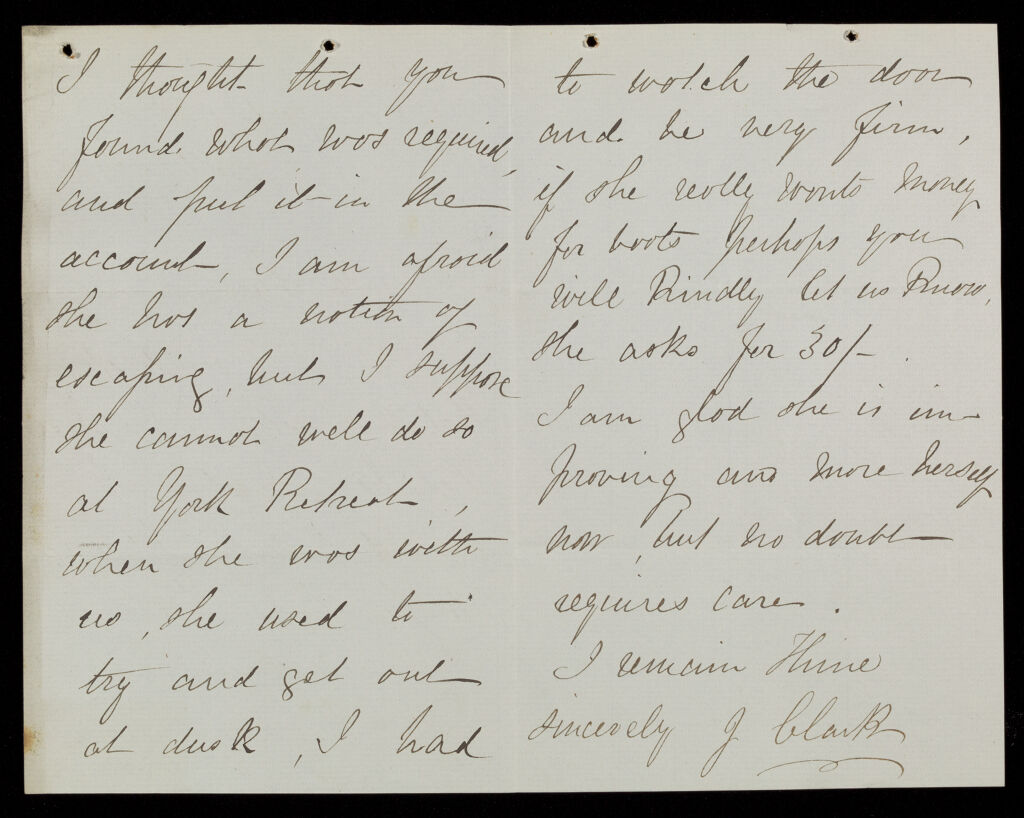 I thought that you
found what was required,
and put it in the
account, I am afraid
she has a notion of
escaping, but I suppose
she cannot well do so
at York Retreat,
when she was with
us, she used to
try and get out
at dusk, I had
to watch the door
and be very firm,
if she really wants money
for boots perhaps you
will kindly let us know,
she asks for 30/-.
I am glad she is im-
proving and more herself
now, but no doubt
requires care.
I remain Thine
sincerely J Clark